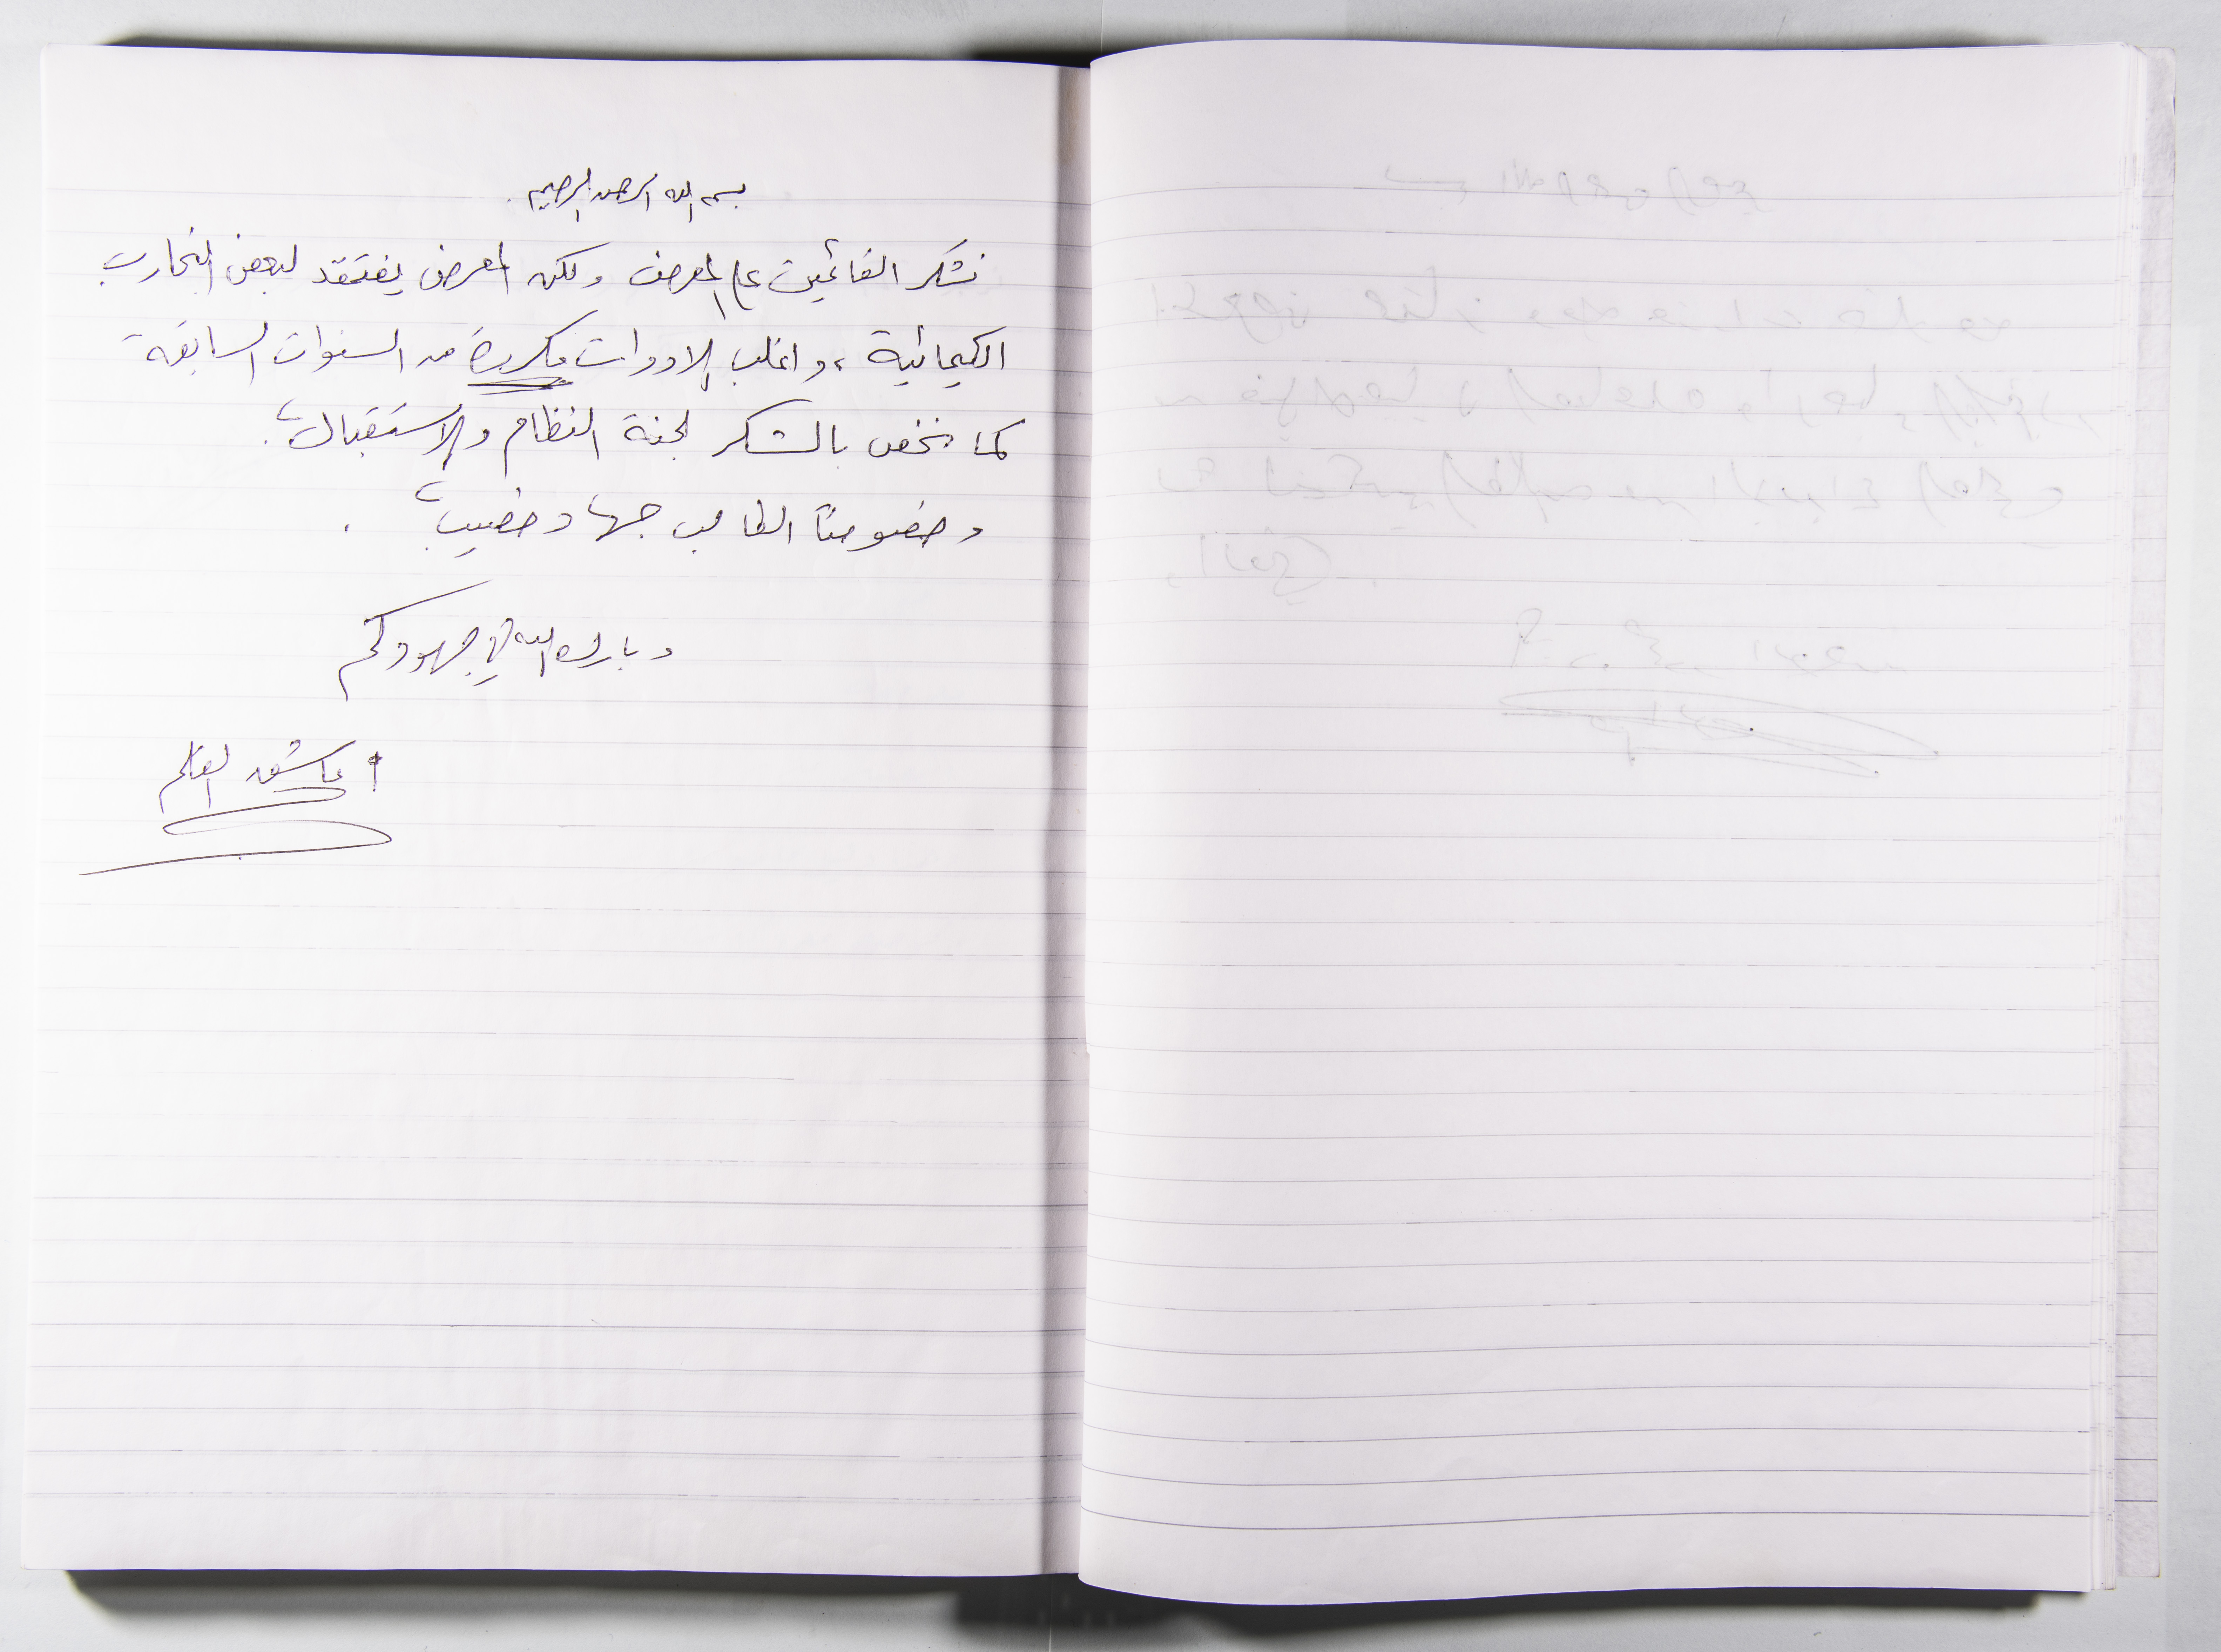 بسم الله الرحمن الرحيم
نشكر القائمين على المعرض ولكن المعرض يفتقد لبعض التجارب
الكيميائية ، واغلب الادوات مكررة من السنوات السابقة
كما نخص بالشكر لجنة النظام والاستقبال ،
وخصوصاً الطالب جهاد خضيب .
وبارك الله في جهودكم
عاشق القلم